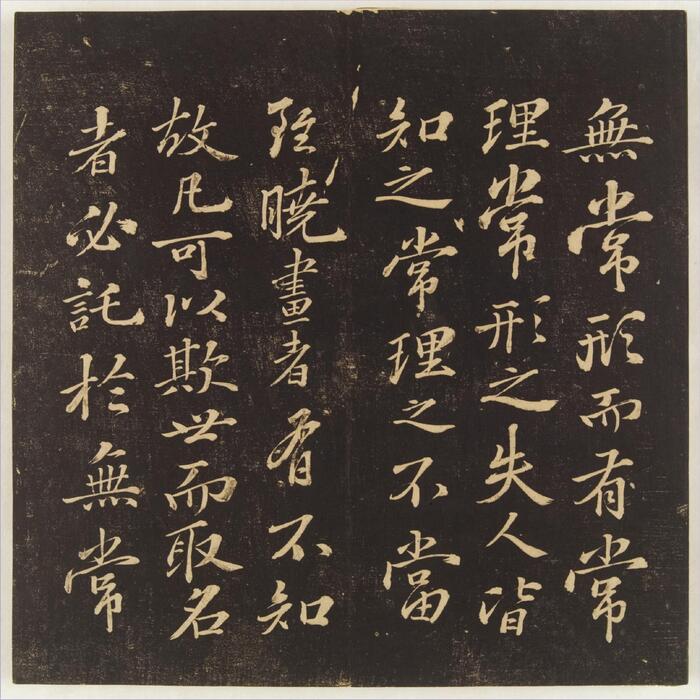 無常形而有常
理常形之失人皆
知之常理之不當
雖曉畫者有不知
故凡可以欺世而取名
者必託於無常